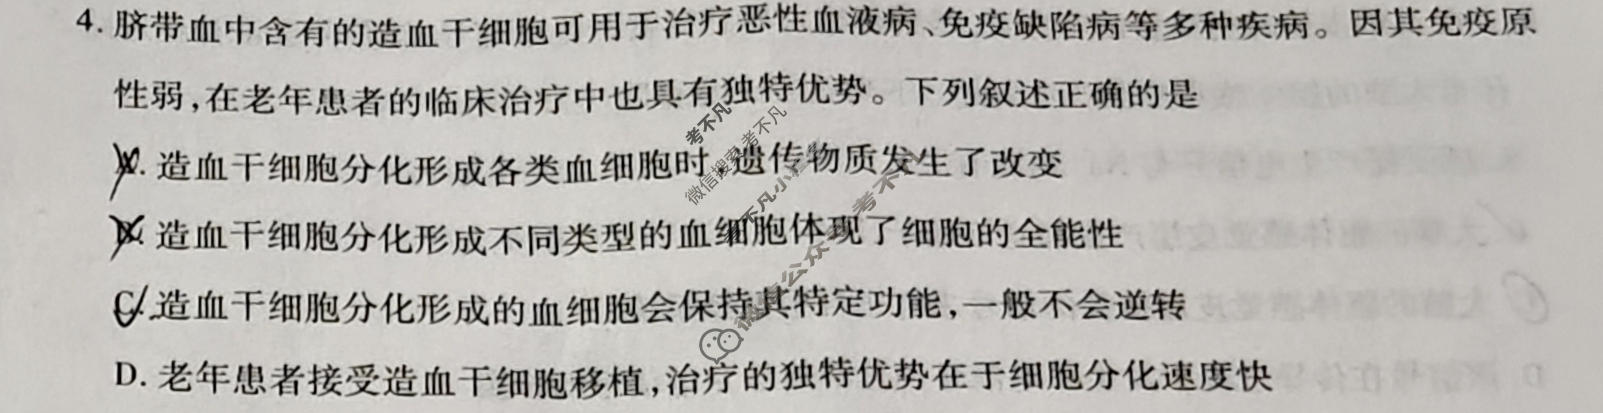 4. 脐带血中含有的造血干细胞可用于治疗恶性血液病、免疫缺陷病等多种疾病。因其免疫原
性弱,在老年患者的临床治疗中也具有独特优势。下列叙述正确的是
A. 造血干细胞分化形成各类血细胞时,遗传物质发生了改变
B. 造血干细胞分化形成不同类型的血细胞体现了细胞的全能性
C. 造血干细胞分化形成的血细胞会保持其特定功能,一般不会逆转
D. 老年患者接受造血干细胞移植,治疗的独特优势在于细胞分化速度快
考不凡
微信搜索考不凡
不凡小程序
微信公众号 考不凡